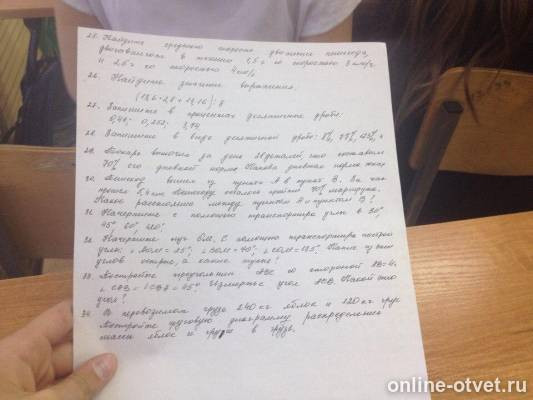 25. Найдите среднюю скорость движения пешехода,
двигавшегося в течение 1,5 ч со скоростью 3 км/ч
и 2,5 ч со скоростью 4 км/ч
26. Найдите значение выражения.
27. Запишите в процентах десятичные дроби:
0,48; 0,252; 3,74
28. Запишите в виде десятичной дроби: 8%, 75%, 125%,
29. Токарь выточил за день деталей, что составило
70% его дневной нормы. Какова дневная норма токаря
30. Пешеход вышел из пункта A в пункт B. За час
прошел 5,4 км. Пешеходу осталось пройти маршрута.
Какое расстояние между пунктом A и пунктом B?
31. Начертите с помощью транспортира углы в 30°,
45°, 60°, 120°.
32. Начертите луч OM. С помощью транспортира построй
углы:
углов острые, а какие тупые?
33. Постройте треугольник ABC со стороной AB =
Измерьте угол ACB. Какой это
угол?
34. В перевозимом грузе 240 кг яблок и 120 кг груш
Постройте круговую диаграмму распределения
массы яблок и груш в грузе.
online-otvet.ru